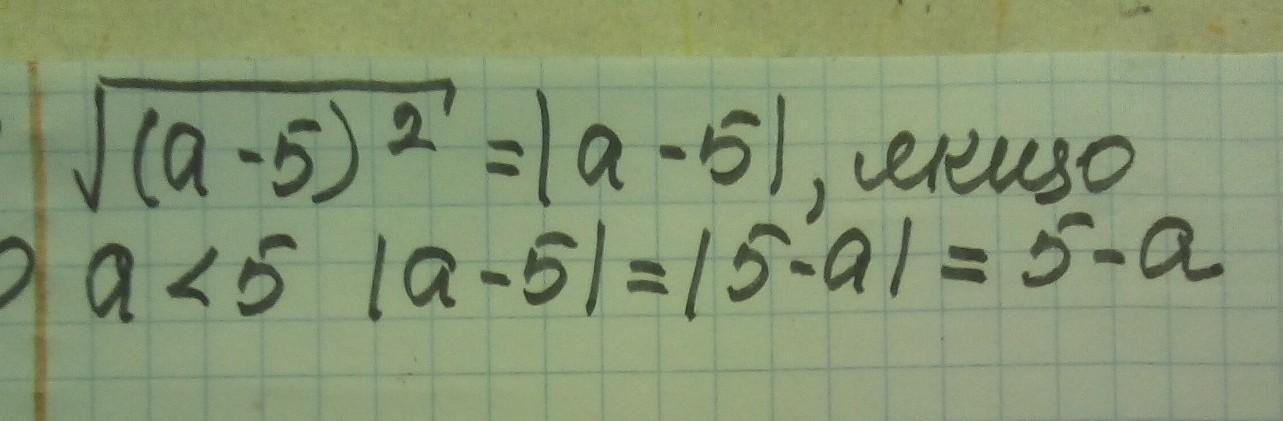 √(a-5)² = |a-5|, якщо
a < 5 |a-5| = |5-a| = 5-a